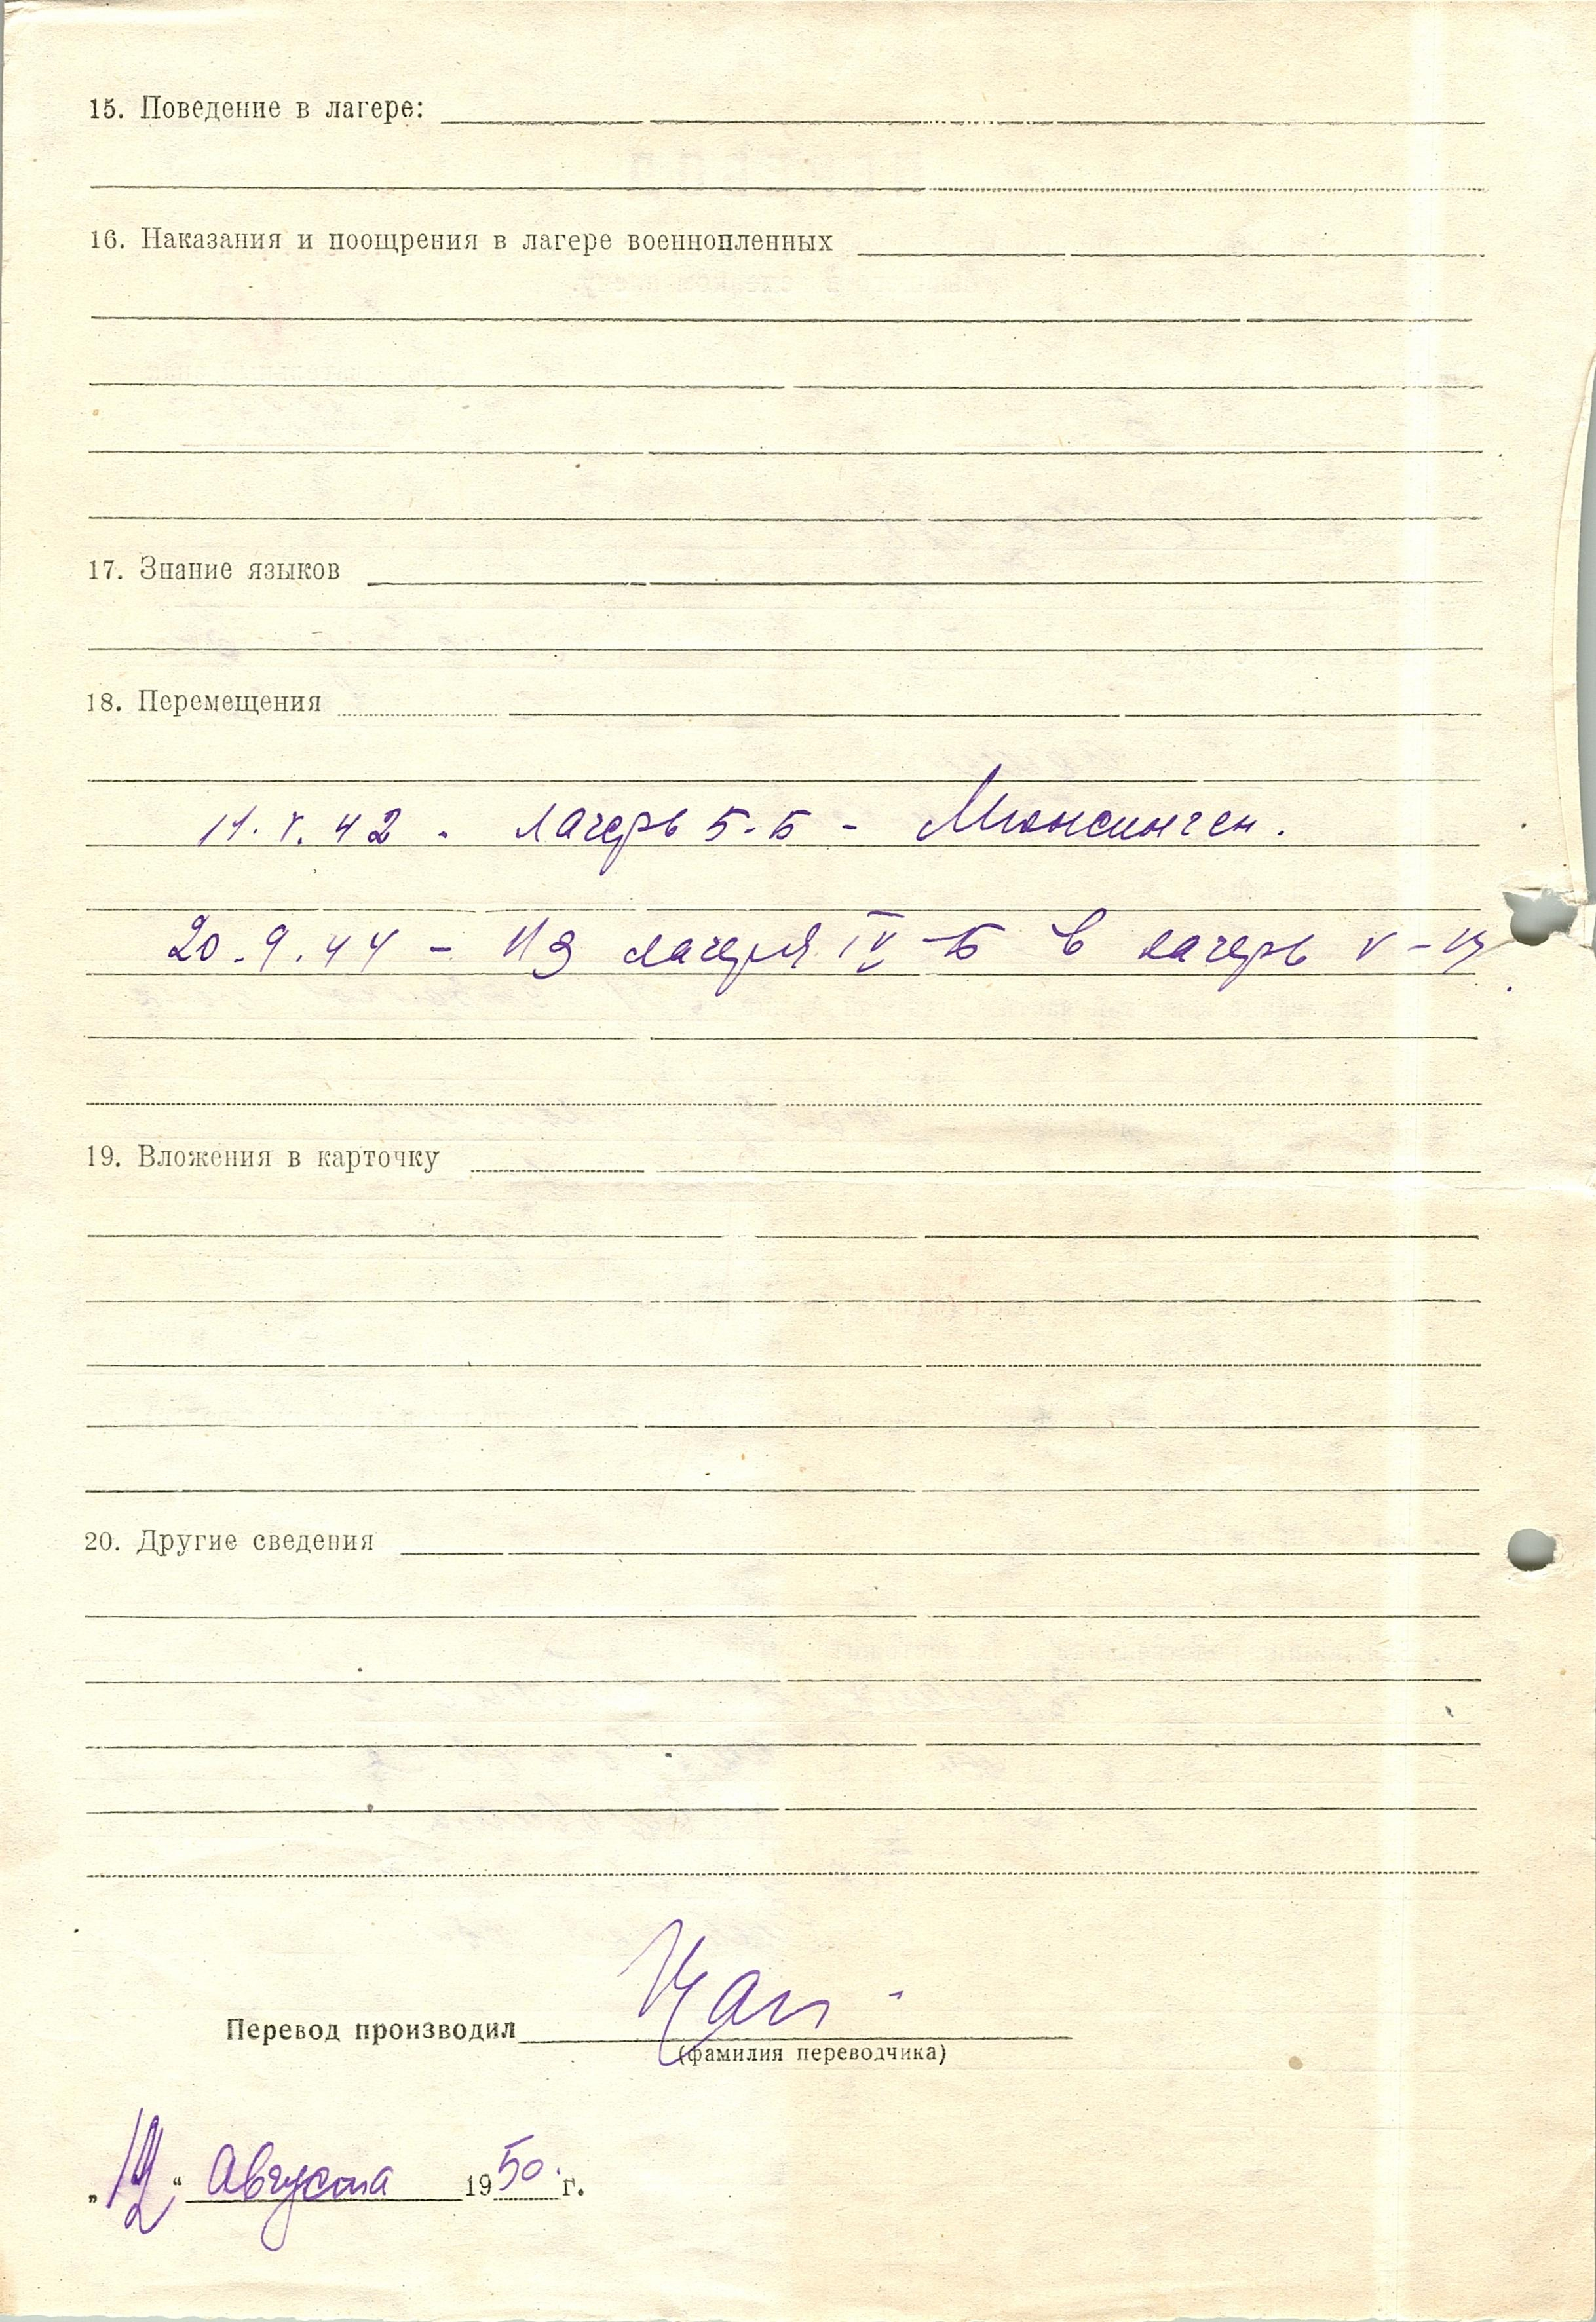 15. Поведение в лагере:
16. Наказания и поощрения в лагере военнопленных
17. Знание языков
18. Перемещения
11. V. 42 - лагерь 5-Б - Мюнсинген.
20. 9. 44 - из лагеря IV-Б в лагерь V-
19. Вложения в карточку
20. Другие сведения
Перевод производил
(фамилия переводчика)
августа 1950 г.